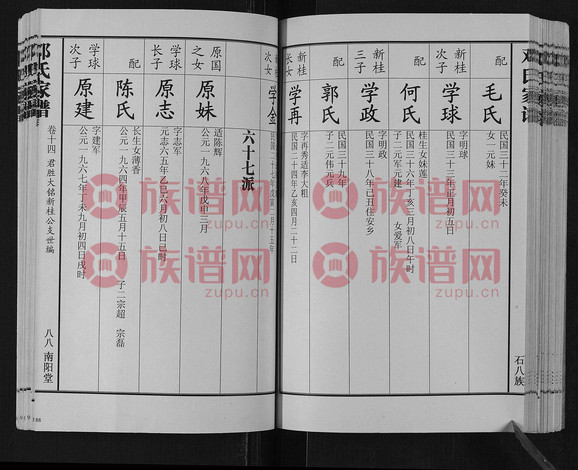 配
毛氏
民国三十二年癸未
女一元妹
学球
次子
学球
字明球
民国三十三年
月初五日
新桂
配
何氏
桂生女妹莲
民国三十六年丁亥三月初八日午时
子二元军元建
女爱军
新桂
三子
学政
字明政
民国三十八年己丑住安乡
配
郭氏
民国三十九年
子二元伟元兵
新桂
长女
学再
字再秀适李大祖
民国二十四年乙亥四月二十二日
新桂
次女
学金
六十七派
原国
之女
原妹
适陈辉
公元一九六八年戊申三月
学球
长子
原志
字志军
元志六五年乙巳六月初八日巳时
配
陈氏
长生女薄香
公元一九六四年甲辰五月十五日
子二宗超 宗磊
学球
次子
原建
字建军
公元一九六七年丁未九月初四日戌时
邓氏家谱
卷十四 君胜大铭新桂公支世编
八八 南阳堂
石八族
邓氏家谱
族谱网
zupu.cn
族谱网
zupu.cn
族谱网
zupu.cn
族谱网
zupu.cn